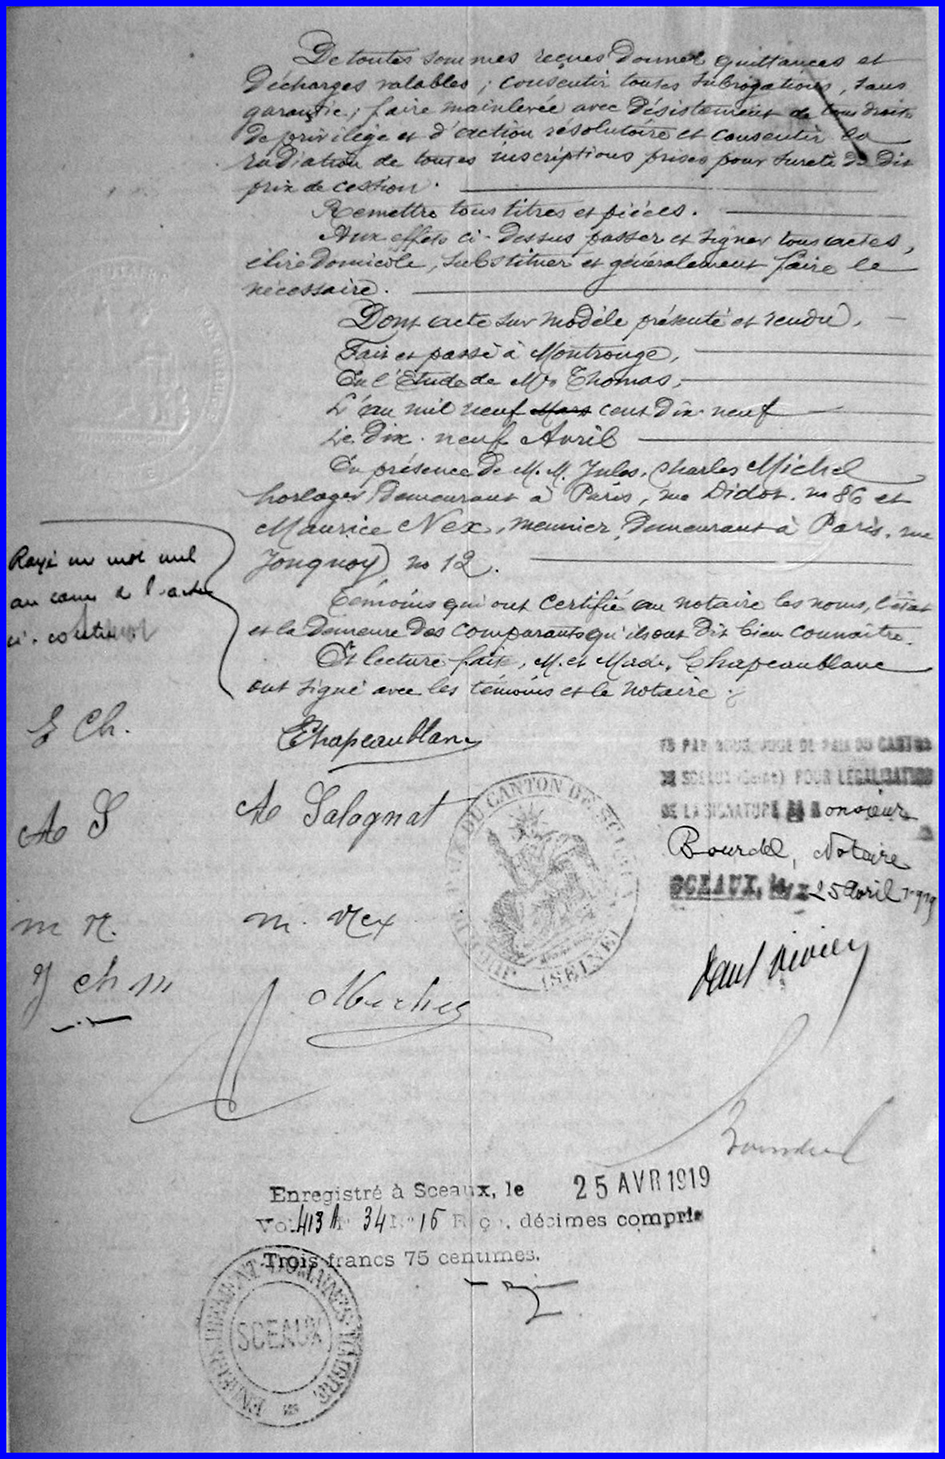 De toutes sommes reçues donner quittances et
décharges valables ; consentir toutes subrogations, sans
garantie ; faire mainlevée avec désistement de tous droits
de privilège et d'action résolutoire et consentir la
radiation de toutes inscriptions prises pour sureté du dit
prix de cession.
Remettre tous titres et pièces.
Aux effets ci-dessus passer et signer tous actes,
élire domicile, substituer et généralement faire le
nécessaire.
Dont acte sur modèle présenté et rendu.
Fait et passé à Montrouge,
En l'Etude de Me Thomas,
L'an mil neuf Mars cent dix-neuf
Le dix-neuf Avril
En présence de M.M. Jules, Charles Michel
horloger demeurant à Paris, rue Didot, no 86 et
Maurice Nex, meunier, demeurant à Paris, rue
Jonquoy no 12.
Témoins qui ont certifié au notaire les noms, l'état
et la demeure des comparants qu'ils ont dit bien connaître.
Et lecture faite, M. et Made Chapeaublanc
ont signé avec les témoins et le notaire
Rayé un mot nul
au cours de l'acte
ci-contre
E Ch.
Chapeaublanc
Ae S
Ae Salagnat
m N.
m. Nex
J ch m
Michel
PAR NOUS, JUGE DE PAIX DU CANTON
DE SCEAUX (Seine) POUR LÉGALISATION
DE LA SIGNATURE de Monsieur
Bourdel, Notaire
SCEAUX, le 25 avril 1919
PAIX DU CANTON DE SCEAUX
(SEINE)
Bourdel
Enregistré à Sceaux, le 25 AVR 1919
Vol. 413 A F° 34 N° 15 Reçu, décimes compris
Trois francs 75 centimes.
ENREGISTREMENT DOMAINES TIMBRE
SCEAUX